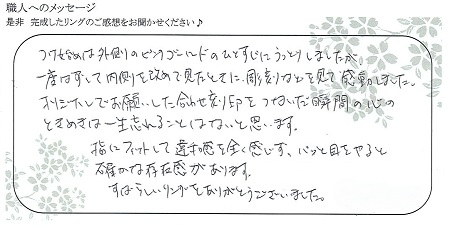 職人へのメッセージ
是非 完成したリングのご感想をお聞かせください♪
つけ始めは外側のピンクゴールドのひとすじにうっとりしましたが、
一度はずして内側を改めて見たときに、彫刻などを見て感動しました。
オリジナルでお願いした合わせ刻印をつないだ瞬間の心の
ときめきは一生忘れることはないと思います。
指にフィットして違和感を全く感じず、パッと目をやると
確かな存在感があります。
すばらしいリングをありがとうございました。